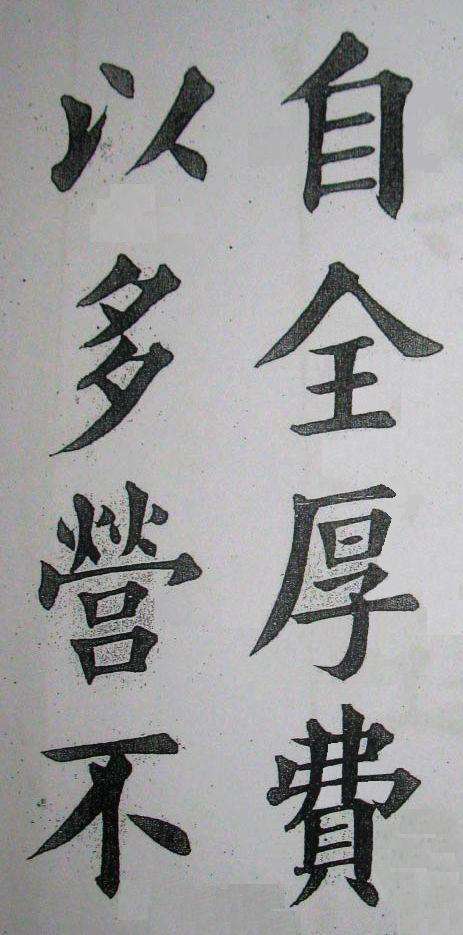 自全厚費
以多營不